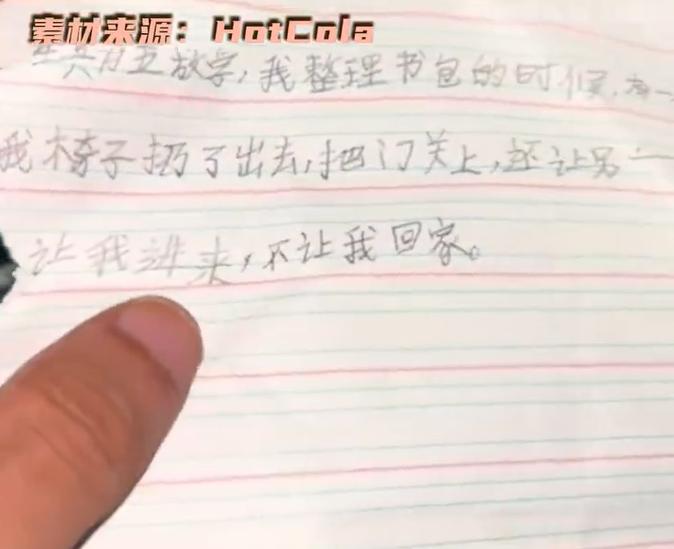 素材来源：HotCola
放学，我整理书包的时候，有一
我椅子扔了出去，把门关上，还让另一
让我进来，不让我回家。